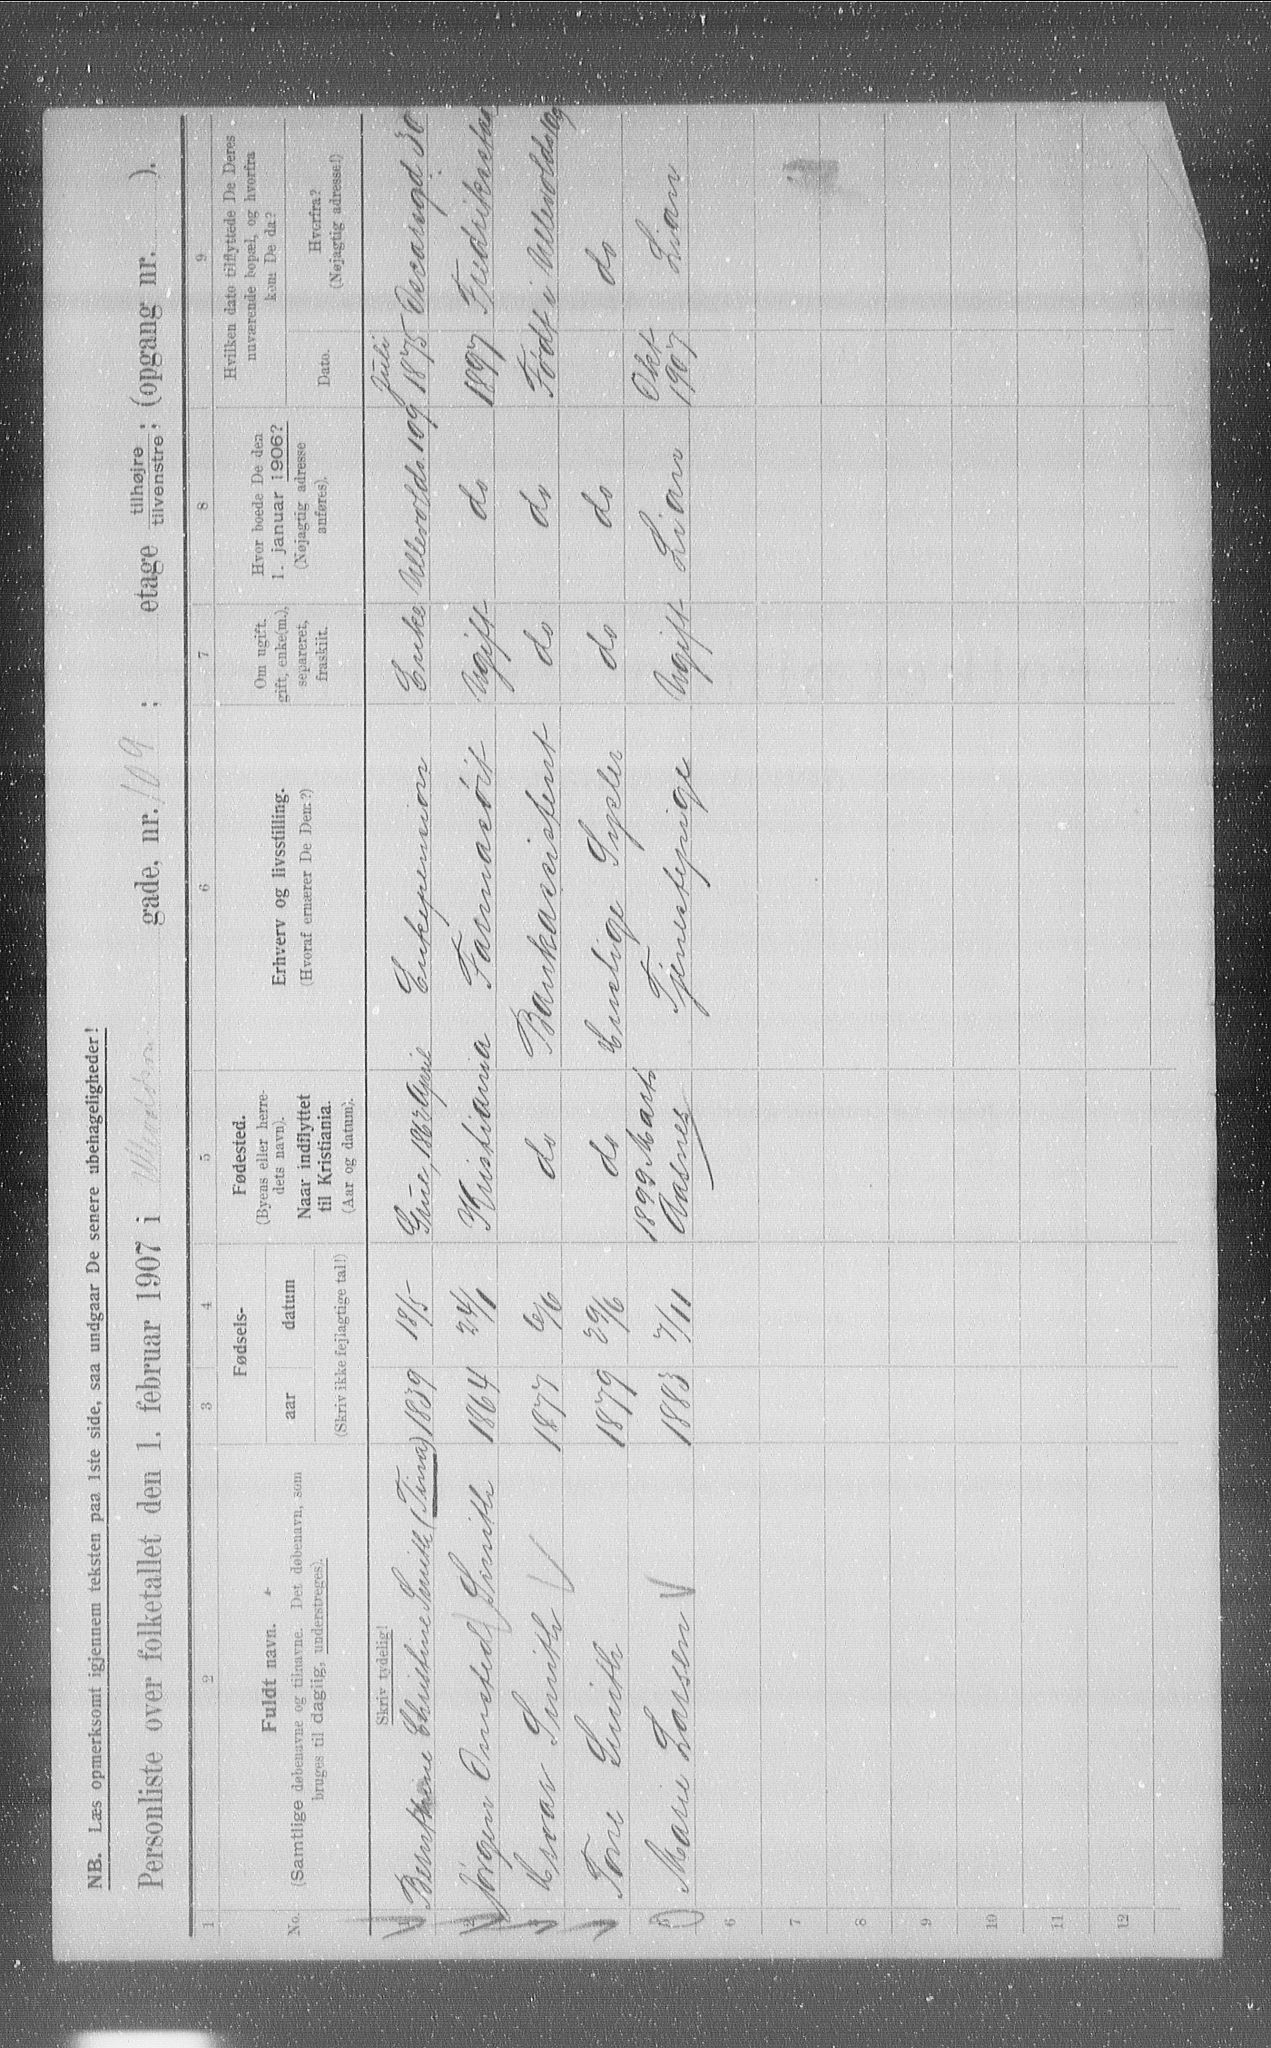 NB. Læs opmerksomt igjennem teksten paa 1ste side, saa undgaar De senere ubehageligheder!
Personliste over folketallet den 1. februar 1907 i Ullevoldsv. gade, nr. 109 ; etage tilhøjre ; tilvenstre ; (opgang nr. ).
1 2 3 4 5 6 7 8 9
No.
Fuldt navn.
(Samtlige døbenavne og tilnavne. Det døbenavn, som
bruges til daglig, understreges).
Fødsels-
aar datum
(Skriv ikke fejlagtige tal!)
Fødested.
(Byens eller herre-
dets navn).
Naar indflyttet
til Kristiania.
(Aar og datum).
Erhverv og livsstilling.
(Hvoraf ernærer De Dem?)
Om ugift,
gift, enke(m.),
separeret,
fraskilt.
Hvor boede De den
1. januar 1906?
(Nøjagtig adresse
anføres).
Hvilken dato tilflyttede De Deres
nuværende bopæl, og hvorfra
kom De da?
Dato.
Hvorfra?
(Nøjagtig adresse!)
Skriv tydelig!
1 Christine Smith (Tina) 1839 18/5 Grue, 1862 April Enkepension Enke Ullevoldsv 109 Juli 1875 Oscarsgd. 30
2 Jörgen Omsted Smith 1864 24/1 Kristiania Farmacöit Ugift do 1897 Fredrikstad
3 Smith 1877 6/6 do Bankassistent do do Født i Ullevoldsvg
4 Tore Smith 1879 29/6 do Sysler do do do
5 Marie Larsen 1883 7/11 1899 Marts Aasnes Tjenestepige Ugift Lian Okt 1907 Lian
6
7
8
9
10
11
12